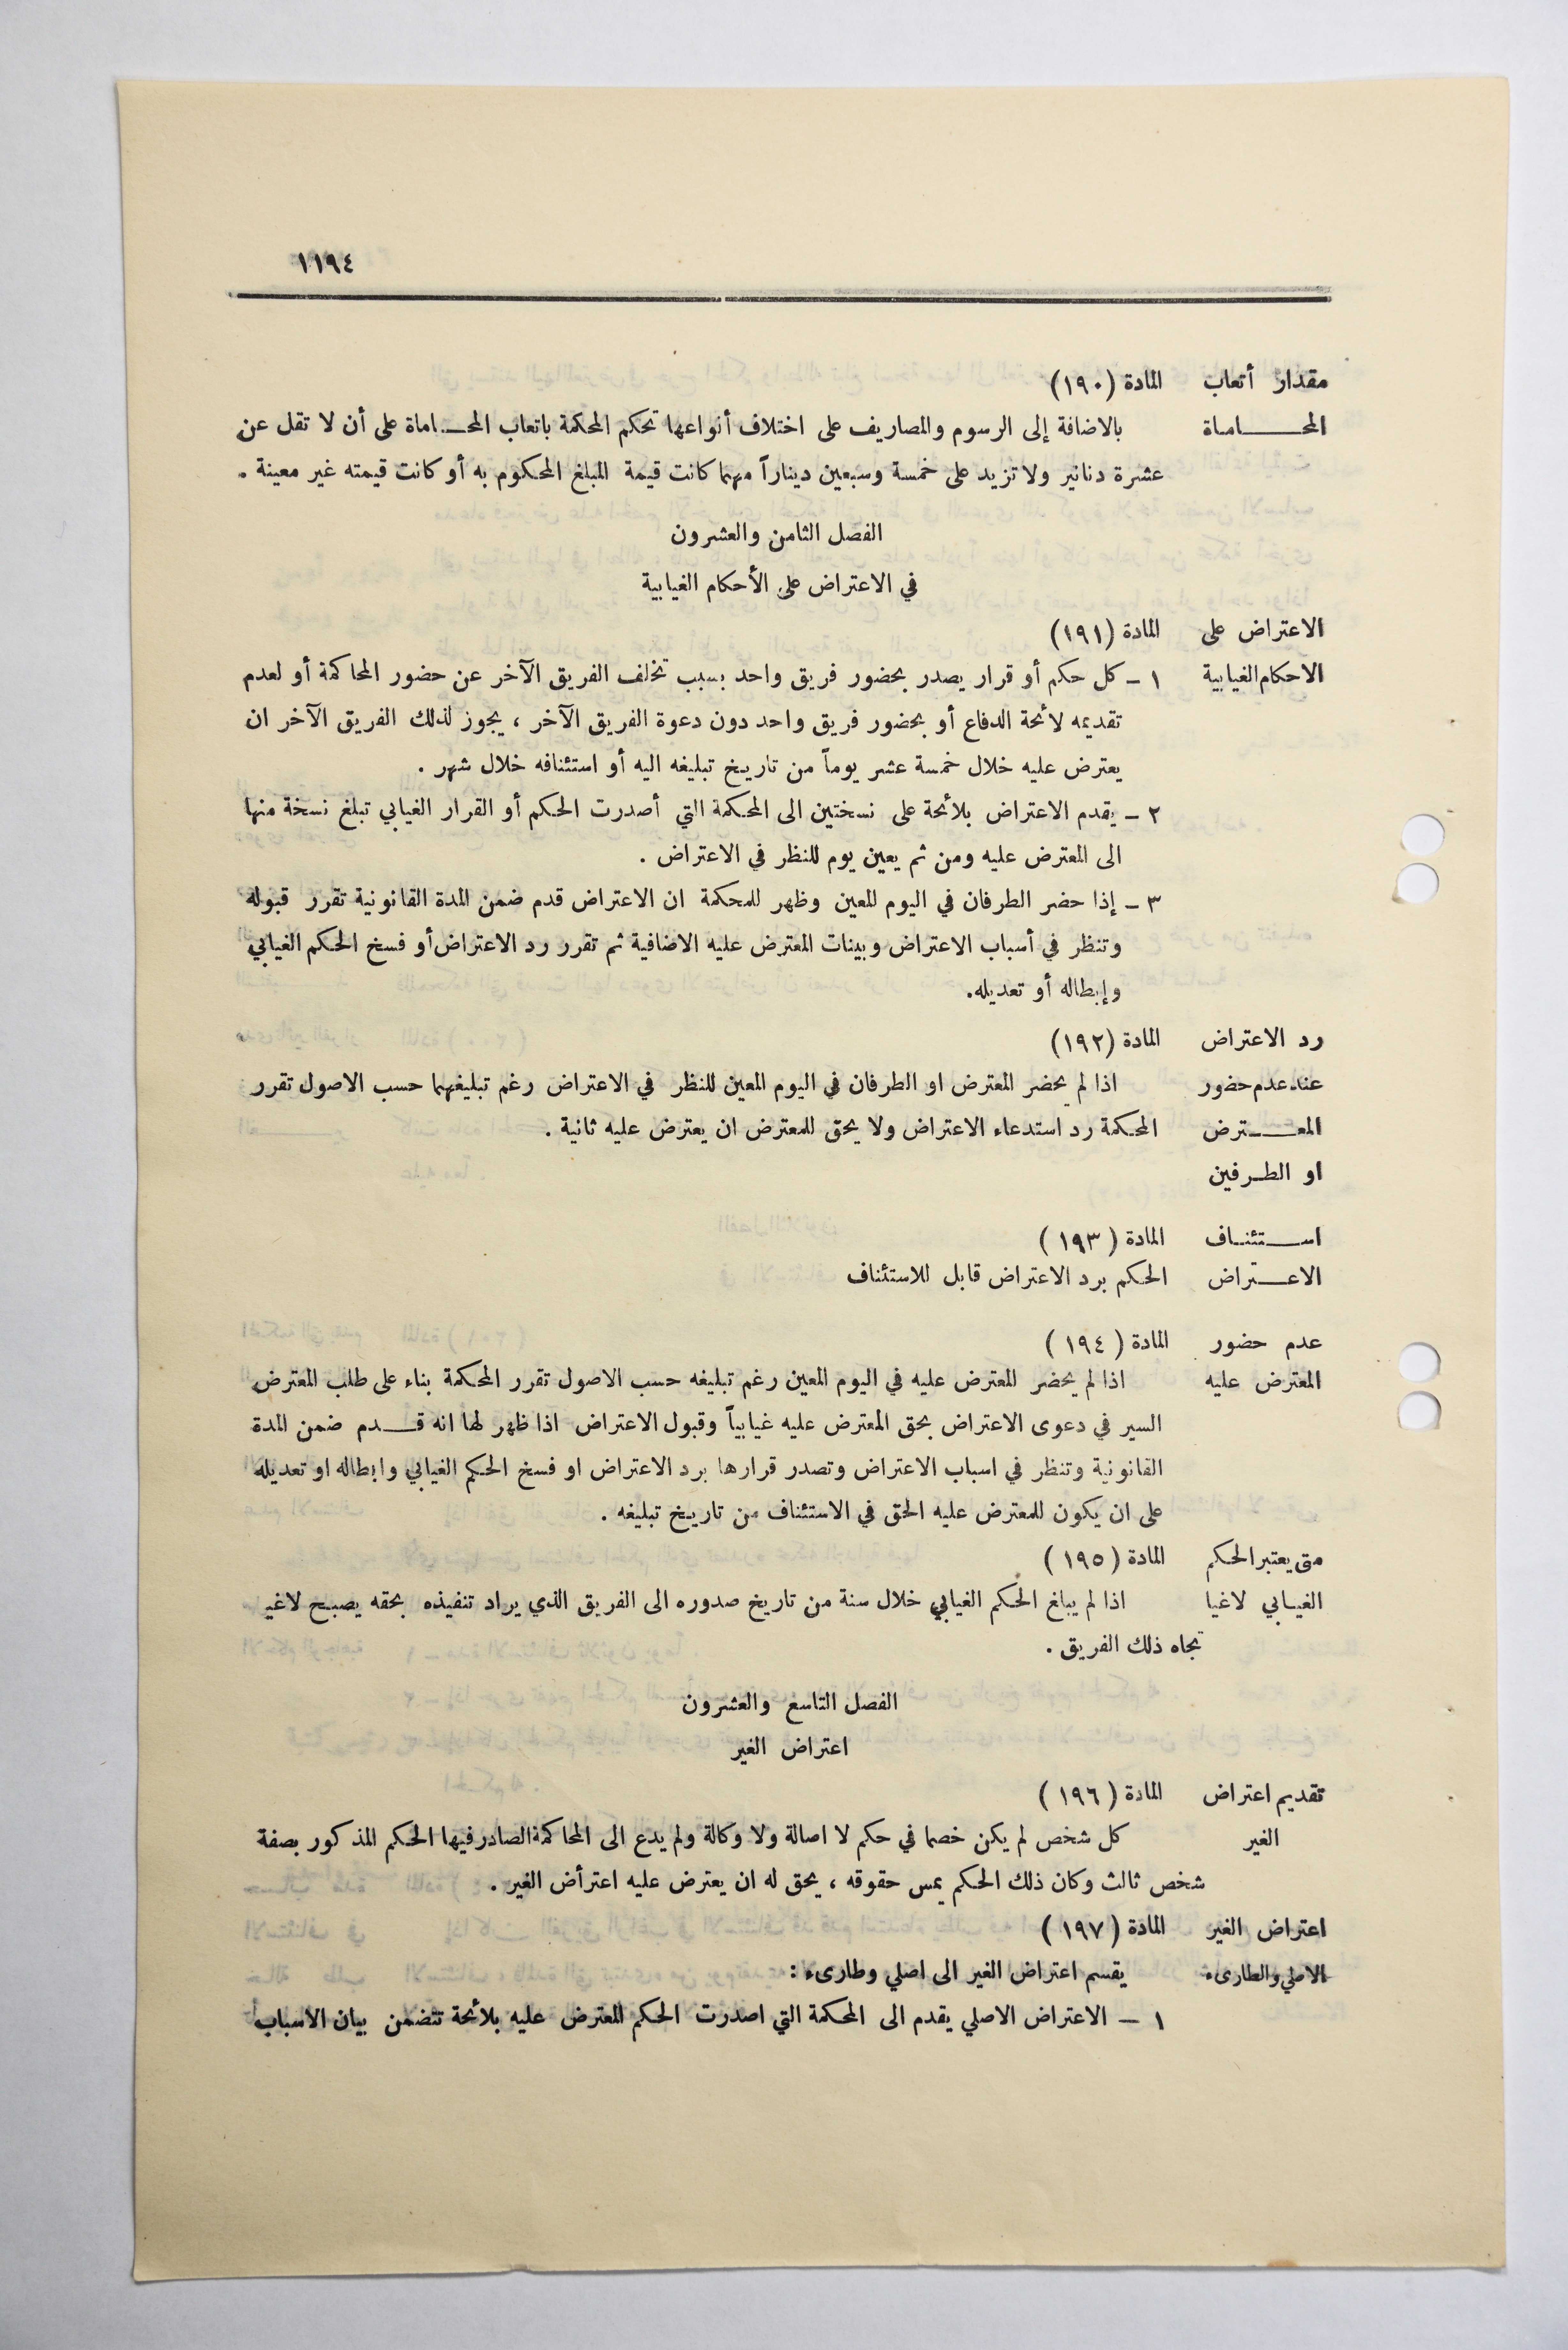 ١١٩٤
مقدار أتعاب المادة (١٩٠)
المحـــاماة بالاضافة إلى الرسوم والمصاريف على اختلاف أنواعها تحكم المحكمة باتعاب المحـاماة على أن لا تقل عن
عشرة دنانير ولا تزيد على خمسة وسبعين ديناراً مهما كانت قيمة المبلغ المحكوم به أو كانت قيمته غير معينة .
الفصل الثامن والعشرون
في الاعتراض على الأحكام الغيابية
الاعتراض على المادة (١٩١)
الاحكام الغيابية ١ ـ كل حكم أو قرار يصدر بحضور فريق واحد بسبب تخلف الفريق الآخر عن حضور المحاكمة أو لعدم
تقديمه لائحة الدفاع أو بحضور فريق واحد دون دعوة الفريق الآخر ، يجوز لذلك الفريق الآخر ان
يعترض عليه خلال خمسة عشر يوماً من تاريخ تبليغه اليه أو استئنافه خلال شهر .
٢ ـ يقدم الاعتراض بلائحة على نسختين الى المحكمة التي أصدرت الحكم أو القرار الغيابي تبلغ نسخة منها
الى المعترض عليه ومن ثم يعين يوم للنظر في الاعتراض .
٣ ـ إذا حضر الطرفان في اليوم المعين وظهر للمحكمة ان الاعتراض قدم ضمن المدة القانونية تقرر قبوله
وتنظر في أسباب الاعتراض وبينات المعترض عليه الاضافية ثم تقرر رد الاعتراض أو فسخ الحكم الغيابي
وإبطاله أو تعديله.
رد الاعتراض المادة (١٩٢)
عند عدم حضور اذا لم يحضر المعترض او الطرفان في اليوم المعين للنظر في الاعتراض رغم تبليغهما حسب الاصول تقرر
المعـــترض المحكمة رد استدعاء الاعتراض ولا يحق للمعترض ان يعترض عليه ثانية .
او الطـرفين
اســـتئنـاف المادة ( ١٩٣ )
الاعـــتراض الحكم برد الاعتراض قابل للاستئناف
عدم حضور المادة ( ١٩٤ )
المعترض عليه اذا لم يحضر المعترض عليه في اليوم المعين رغم تبليغه حسب الاصول تقرر المحكمة بناء على طلب المعترض
السير في دعوى الاعتراض بحق المعترض عليه غيابياً وقبول الاعتراض اذا ظهر لها انه قـــدم ضمن المدة
القانونية وتنظر في اسباب الاعتراض وتصدر قرارها برد الاعتراض او فسخ الحكم الغيابي وابطاله او تعديله
على ان يكون للمعترض عليه الحق في الاستئناف من تاريخ تبليغه .
متى يعتبر الحكم المادة ( ١٩٥ )
الغيـابي لاغيا اذا لم يبلغ الحكم الغيابي خلال سنة من تاريخ صدوره الى الفريق الذي يراد تنفيذه بحقه يصبح لاغياً
تجاه ذلك الفريق .
الفصل التاسع والعشرون
اعتراض الغير
تقديم اعتراض المادة ( ١٩٦ )
الغير كل شخص لم يكن خصما في حكم لا اصالة ولا وكالة ولم يدع الى المحاكمة الصادر فيها الحكم المذكور بصفة
شخص ثالث وكان ذلك الحكم يمس حقوقه ، يحق له ان يعترض عليه اعتراض الغير .
اعتراض الغير المادة ( ١٩٧ )
الاصلي والطارىء يقسم اعتراض الغير الى اصلي وطارىء :
١ ـ الاعتراض الاصلي يقدم الى المحكمة التي اصدرت الحكم المعترض عليه بلائحة تتضمن بيان الاسباب